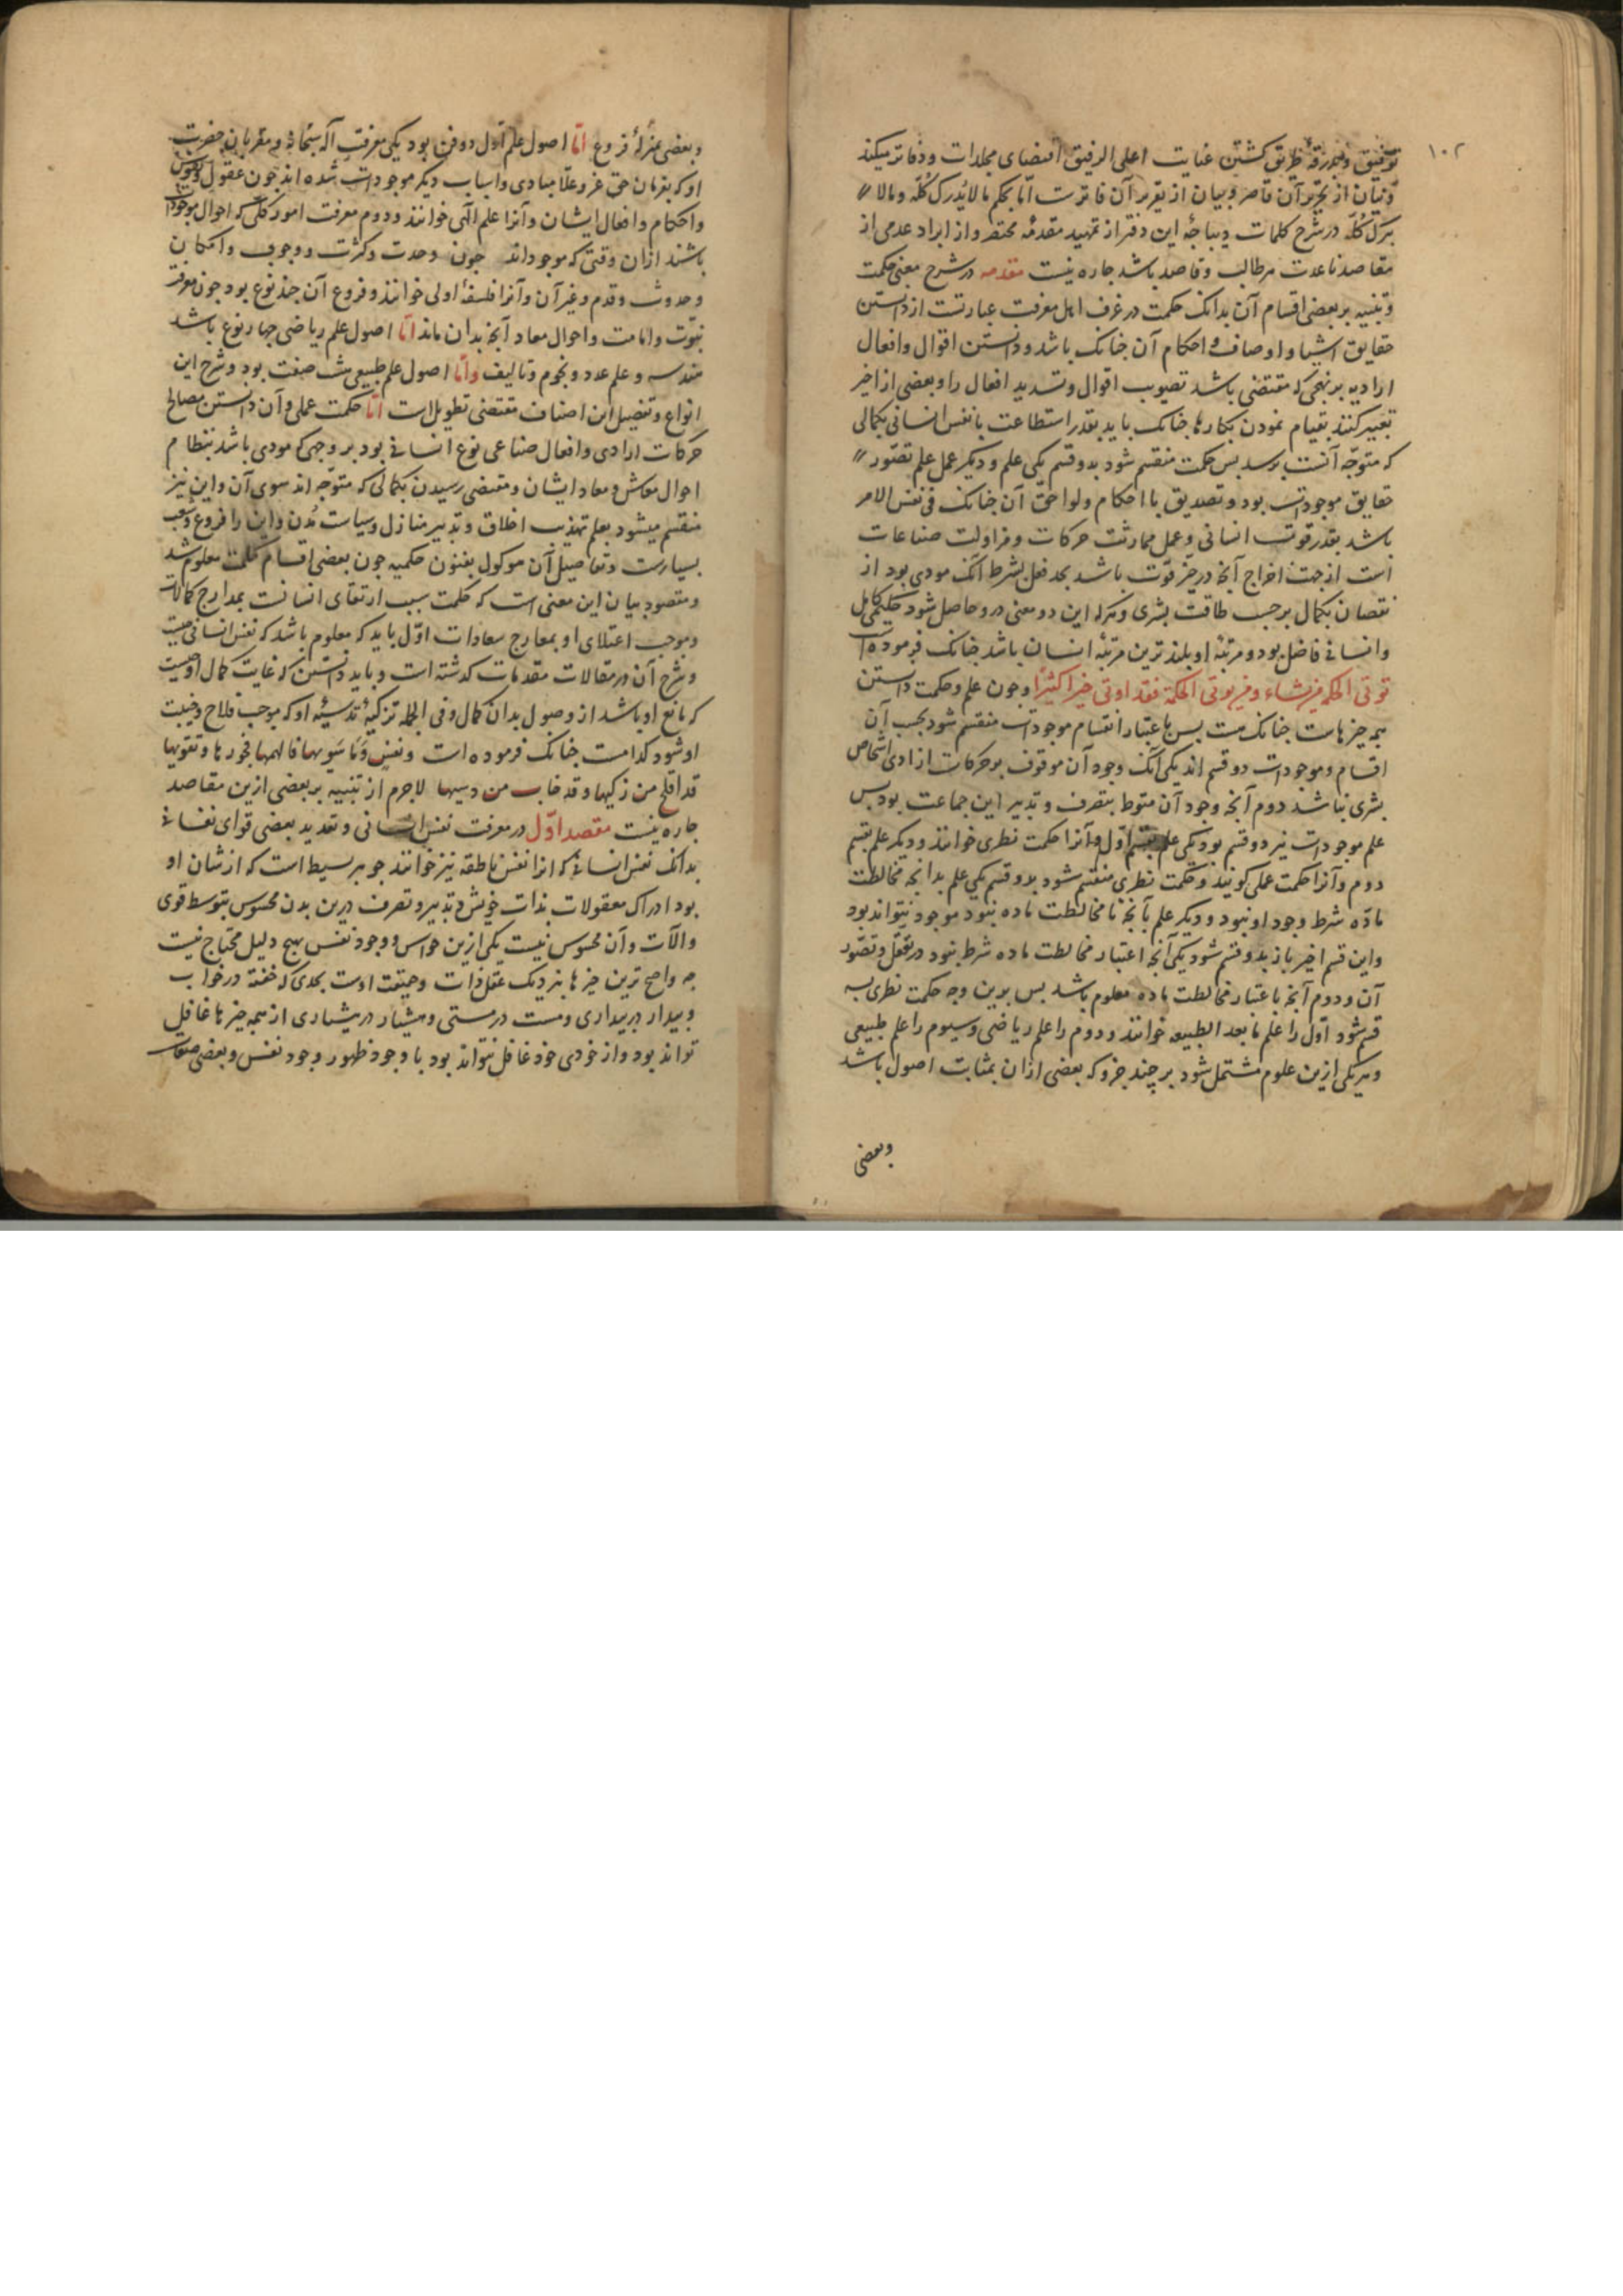 ١٠٢
توفیق و بدرقهٔ طریق کشتن عنایت اعلی الرفیق اقتضای مجلدات و دفاتر میکند
و بنان از تحریر آن قاصر و بیان از تقریر آن فاترست امّا بحکم ما لا یُدرک کُلّه و مالا
یترک کُلّه در شرح کلمات دیباجهٔ این دفتر از تمهید مقدمهٔ مختصر و از ایراد عدمی از
مقاصد باعدت مرطالب و قاصد باشد جاره نیست مقدمه در شرح معنی حکمت
و تنبیه بر بعضی اقسام آن بدانک حکمت در عُرف اهل معرفت عبارتست از دانستن
حقایق اشیا و اوصاف و احکام آن جنانک باشد و دانستن اقوال و افعال
ارادیه بر نهجی که مقتضی باشد تصویب اقوال و تسدید افعال را و بعضی از اخیر
تعبیر کنند بقیام نمودن بکارها جنانک باید بقدر استطاعت تا نفس انسانی بکمالی
که متوجّه آنست برسد بس حکمت منقسم شود بدو قسم یکی علم و دیکر عمل علم تصوّر
حقایق موجودات بود و تصدیق با احکام و لواحق آن جنانک فی نفس الامر
باشد بقدر قوت انسانی و عمل ممارثت حرکات و مزاولت صناعات
است از جهت اخراج آنچه در حیّز قوّت باشد بحد فعل بشرط آنک مودی بود از
نقصان بکمال برحسب طاقت بشری و هرکه این دو معنی درو حاصل شود حکیمی کامل
و انسانی فاضل بود و مرتبهٔ او بلندترین مرتبهٔ انسان باشد جنانک فرموده است
توتی الحکمه من یشاء و من یوتی الحکمة فقد اوتی خیرا کثیرًا و جون علم و حکمت دانستن
همه چیزهاست جنانک هست بس باعتبار انقسام موجودات منقسم شود بحسب آن
اقسام و موجودات دو قسم اند یکی آنک وجود آن موقوف بر حرکات ارادی اشخاص
بشری نباشد دوم آنچه وجود آن منوط بتصرف و تدبیر این جماعت بود بس
علم موجودات نیز دو قسم بود یکی علم بقسم اوّل و آنرا حکمت نظری خوانند و دیکر علم بقسم
دوم و آنرا حکمت عملی کویند و حکمت نظری منقسم شود بدو قسم یکی علم بدانچه مخالطت
مادّه شرط وجود او نبود و دیکر علم بآنچه تا مخالطت ماده نبود موجود نتواند بود
و این قسم اخیر باز بدو قسم شود یکی آنچه اعتبار مخالطت ماده شرط نبود در تعقّل و تصوّر
آن و دوم آنچه باعتبار مخالطت ماده معلوم باشد بس برین وجه حکمت نظری بسه
قسم شود اوّل را علم ما بعد الطبیعه خوانند و دوم را علم ریاضی و سیوم را علم طبیعی
و هریکی ازین علوم مشتمل شود بر چند جزو که بعضی ازان بمثابت اصول باشد
وبعضی
و بعضی بمنزلهٔ فروع امّا اصول علم اوّل دو فن بود یکی معرفت آله سبحانه و مقربان حضرت
او که بفرمان حق عزّ و علا مبادی و اسباب دیکر موجودات شده اند جون عقول و نفوس
و احکام و افعال ایشان و آنرا علم الهی خوانند و دوم معرفت امور کلّی که احوال موجودات
باشند ازان وقتی که موجوداند جون وحدت و کثرت و وجوب و امکان
و حدوث و قدم و غیر آن و آنرا فلسفهٔ اولی خوانند و فروع آن چند نوع بود جون معرفت
نبوّت و امامت و احوال معاد و آنچه بدان ماند امّا اصول علم ریاضی جهار نوع باشد
هندسه و علم عدد و نجوم و تالیف و امّا اصول علم طبیعی هشت صنعت بود و شرح این
انواع و تفصیل این اصناف مقتضی تطویل است امّا حکمت عملی و آن دانستن مصالح
حرکات ارادی و افعال صناعی نوع انسانی بود بر وجهی که مودی باشد بنظام
احوال معاش و معاد ایشان و مقتضی رسیدن بکمالی که متوجّه اند سوی آن و این نیز
منقسم میشود بعلم تهذیب اخلاق و تدبیر منازل و سیاست مُدن و این را فروع و شعب
بسیارست و تفاصیل آن موکول بفنون حکمیه جون بعضی اقسام حکمت معلوم شد
و مقصود بیان این معنی است که حکمت سبب ارتقای انسانست بمدارج کمالات
و موجب اعتلای او بمعارج سعادات اوّل باید که معلوم باشد که نفس انسانی چیست
و شرح آن در مقالات مقدمات کدشته است و باید دانستن که غایت کمال او چیست
که مانع او باشد از وصول بدان کمال و فی الجمله تزکیهٔ تدسیهٔ او که موجب فلاح و خیبت
او شود کدامست جنانک فرموده است و نفسٍ وَمَا سَویها فالهمها فجورها و تقویها
قد افلح من زکیها و قد خاب من دسیها لاجرم از تنبیه بر بعضی ازین مقاصد
جاره نیست مقصد اوّل در معرفت نفس انسانی و تعدید بعضی قوای نفسانی
بدانک نفس انسانی که انرا نفس ناطقه نیز خوانند جوهر بسیط است که از شان او
بود ادراک معقولات بذات خویش و تدبیر و تصرف درین بدن محسوس بتوسط قوی
و الآت و آن محسوس نیست یکی ازین حواس و وجود نفس بهیچ دلیل محتاج نیست
چه واضح ترین چیزها بنزدیک عقل ذات و حقیقت اوست بحدی که خفته در خواب
و بیدار در بیداری و مست در مستی و هشیار در هشیاری از همه چیزها غافل
تواند بود و از خودی خود غافل نتواند بود با وجود ظهور وجود نفس و بعضی صفات